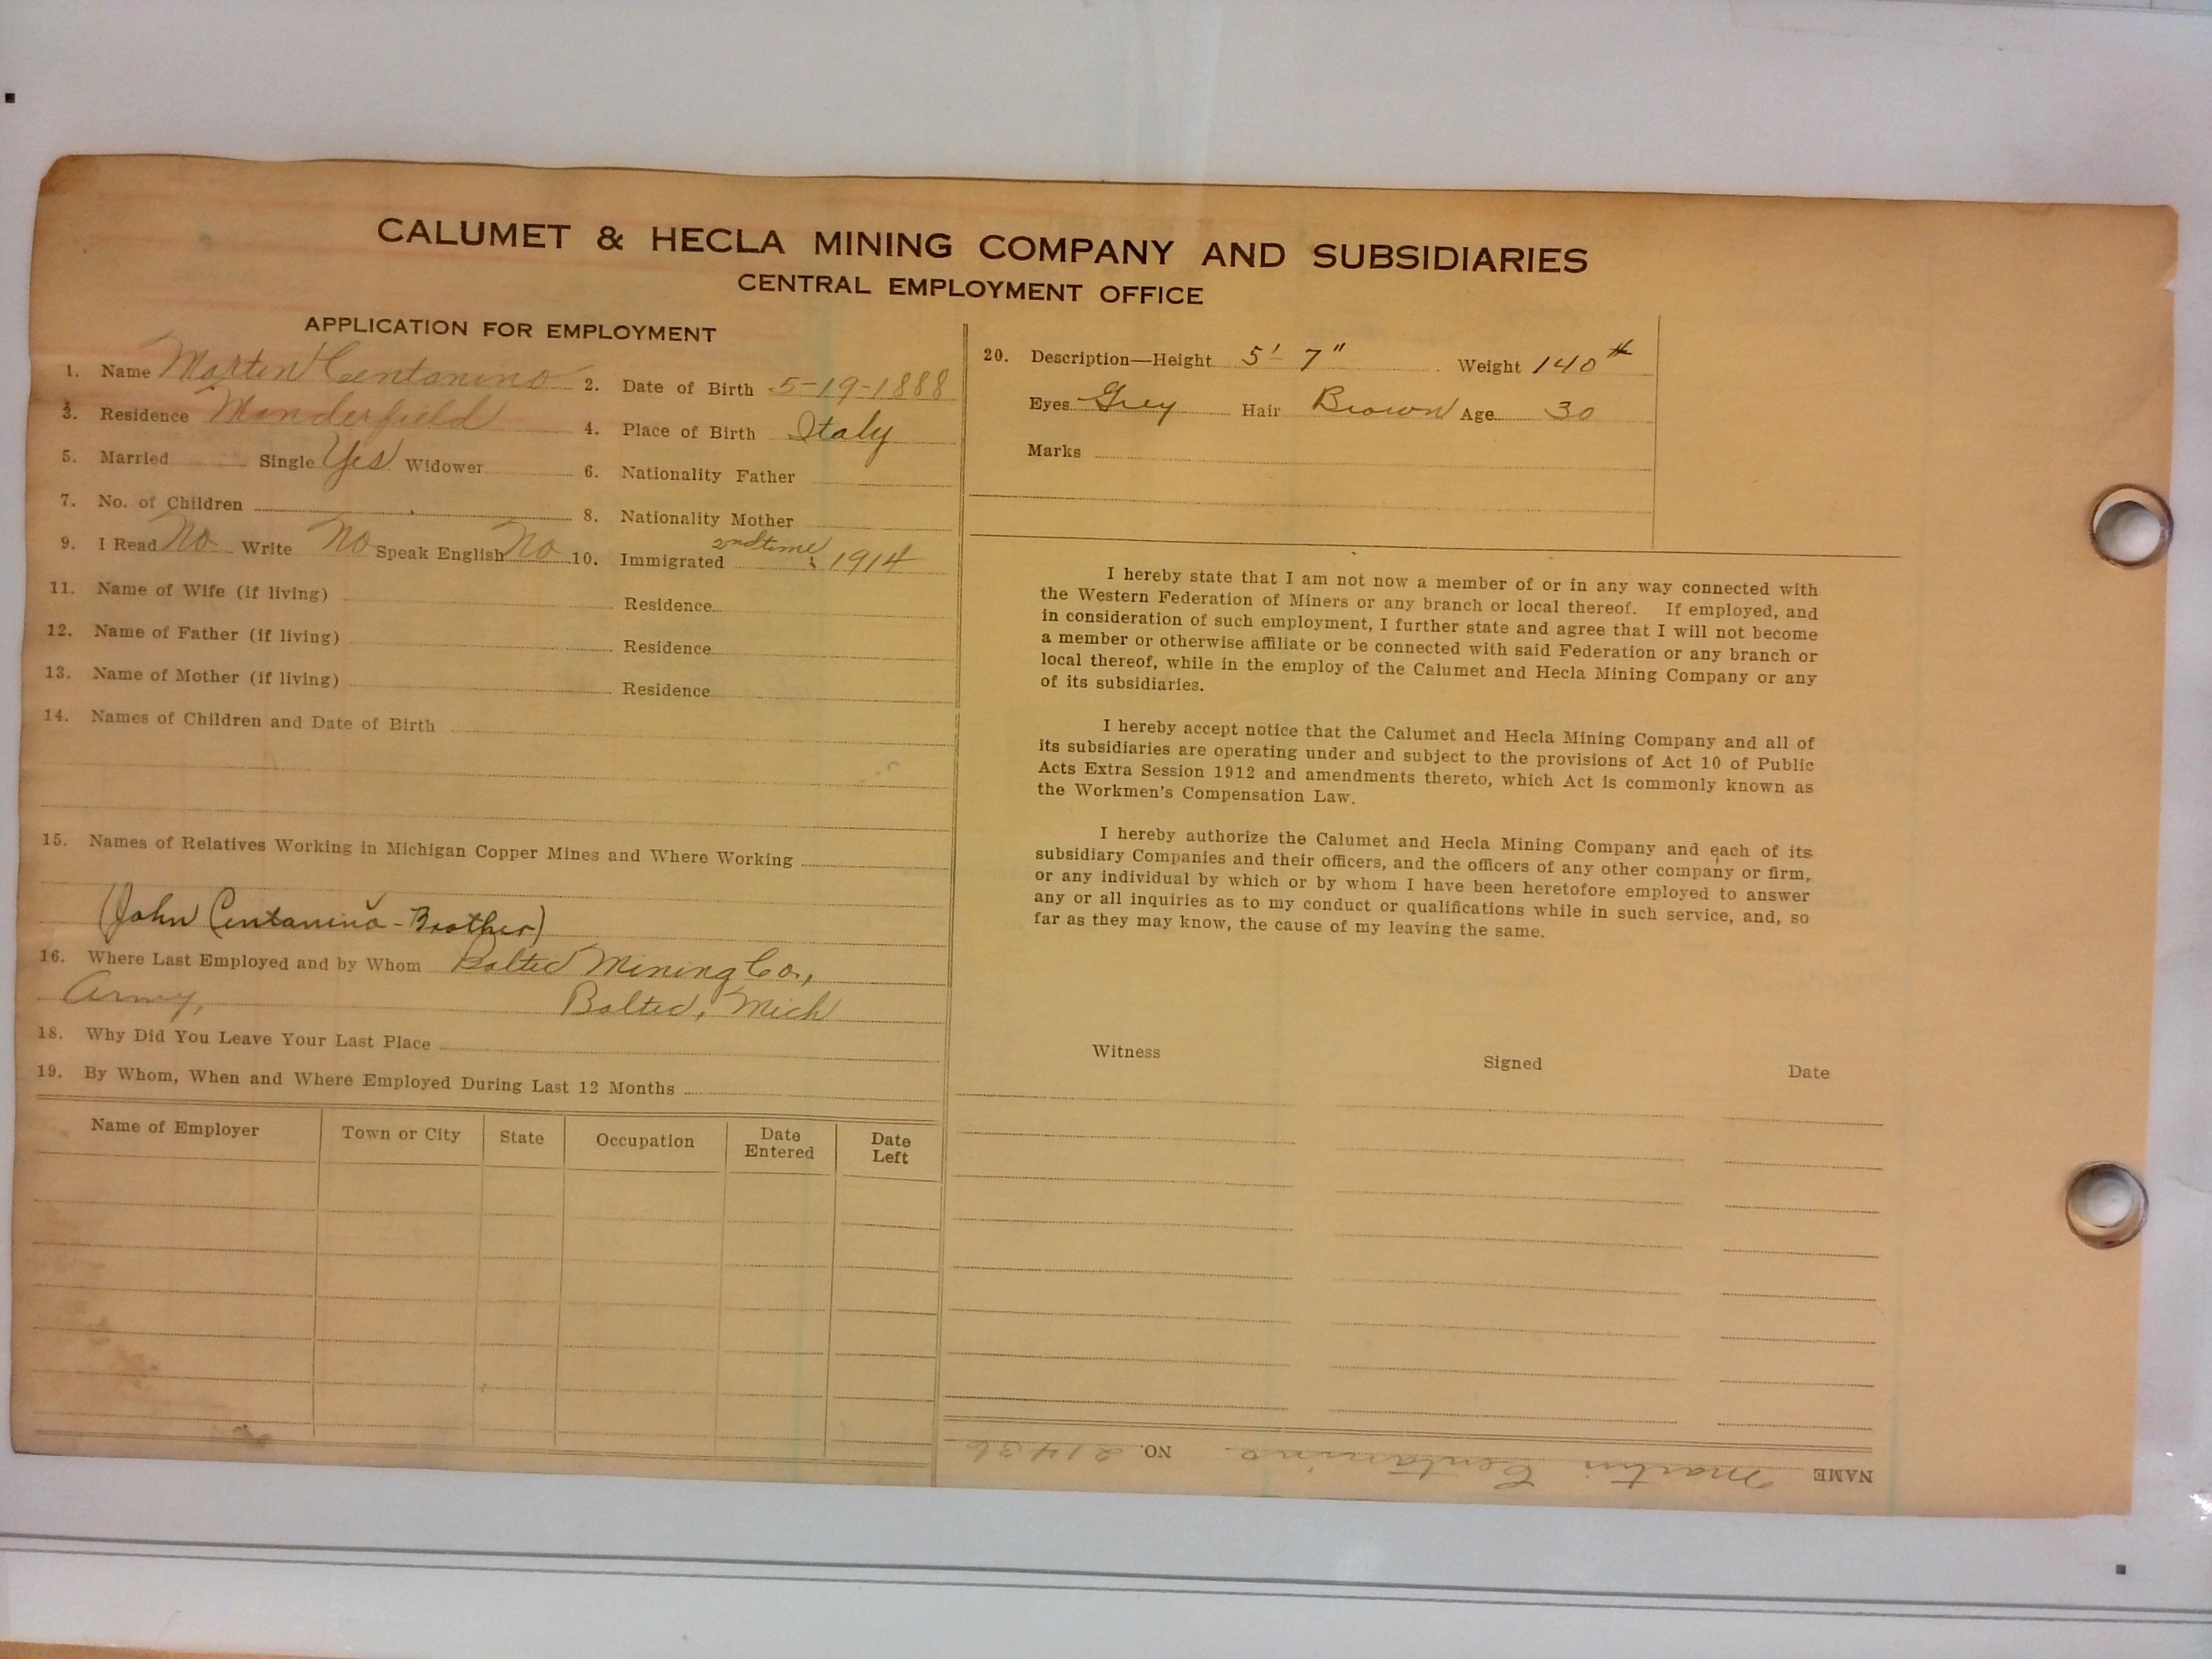 CALUMET & HECLA MINING COMPANY AND SUBSIDIARIES
CENTRAL EMPLOYMENT OFFICE
APPLICATION FOR EMPLOYMENT
1. Name Martin Centanino 2. Date of Birth 5-19-1888
3. Residence Manderfield 4. Place of Birth Italy
5. Married Single Yes Widower 6. Nationality Father
7. No. of Children 8. Nationality Mother
9. I Read No Write No Speak English No 10. Immigrated 2nd time 1914
11. Name of Wife (if living) Residence
12. Name of Father (if living) Residence
13. Name of Mother (if living) Residence
14. Names of Children and Date of Birth
15. Names of Relatives Working in Michigan Copper Mines and Where Working
(John Centanino - Brother)
16. Where Last Employed and by Whom Baltic Mining Co.,
Army, Baltic, Mich
18. Why Did You Leave Your Last Place
19. By Whom, When and Where Employed During Last 12 Months
Name of Employer Town or City State Occupation Date Entered Date Left
20. Description—Height 5' 7" Weight 140#
Eyes Grey Hair Brown Age 30
Marks
I hereby state that I am not now a member of or in any way connected with
the Western Federation of Miners or any branch or local thereof. If employed, and
in consideration of such employment, I further state and agree that I will not become
a member or otherwise affiliate or be connected with said Federation or any branch or
local thereof, while in the employ of the Calumet and Hecla Mining Company or any
of its subsidiaries.
I hereby accept notice that the Calumet and Hecla Mining Company and all of
its subsidiaries are operating under and subject to the provisions of Act 10 of Public
Acts Extra Session 1912 and amendments thereto, which Act is commonly known as
the Workmen's Compensation Law.
I hereby authorize the Calumet and Hecla Mining Company and each of its
subsidiary Companies and their officers, and the officers of any other company or firm,
or any individual by which or by whom I have been heretofore employed to answer
any or all inquiries as to my conduct or qualifications while in such service, and, so
far as they may know, the cause of my leaving the same.
Witness Signed Date
NAME Martin Centanino. NO. 21436